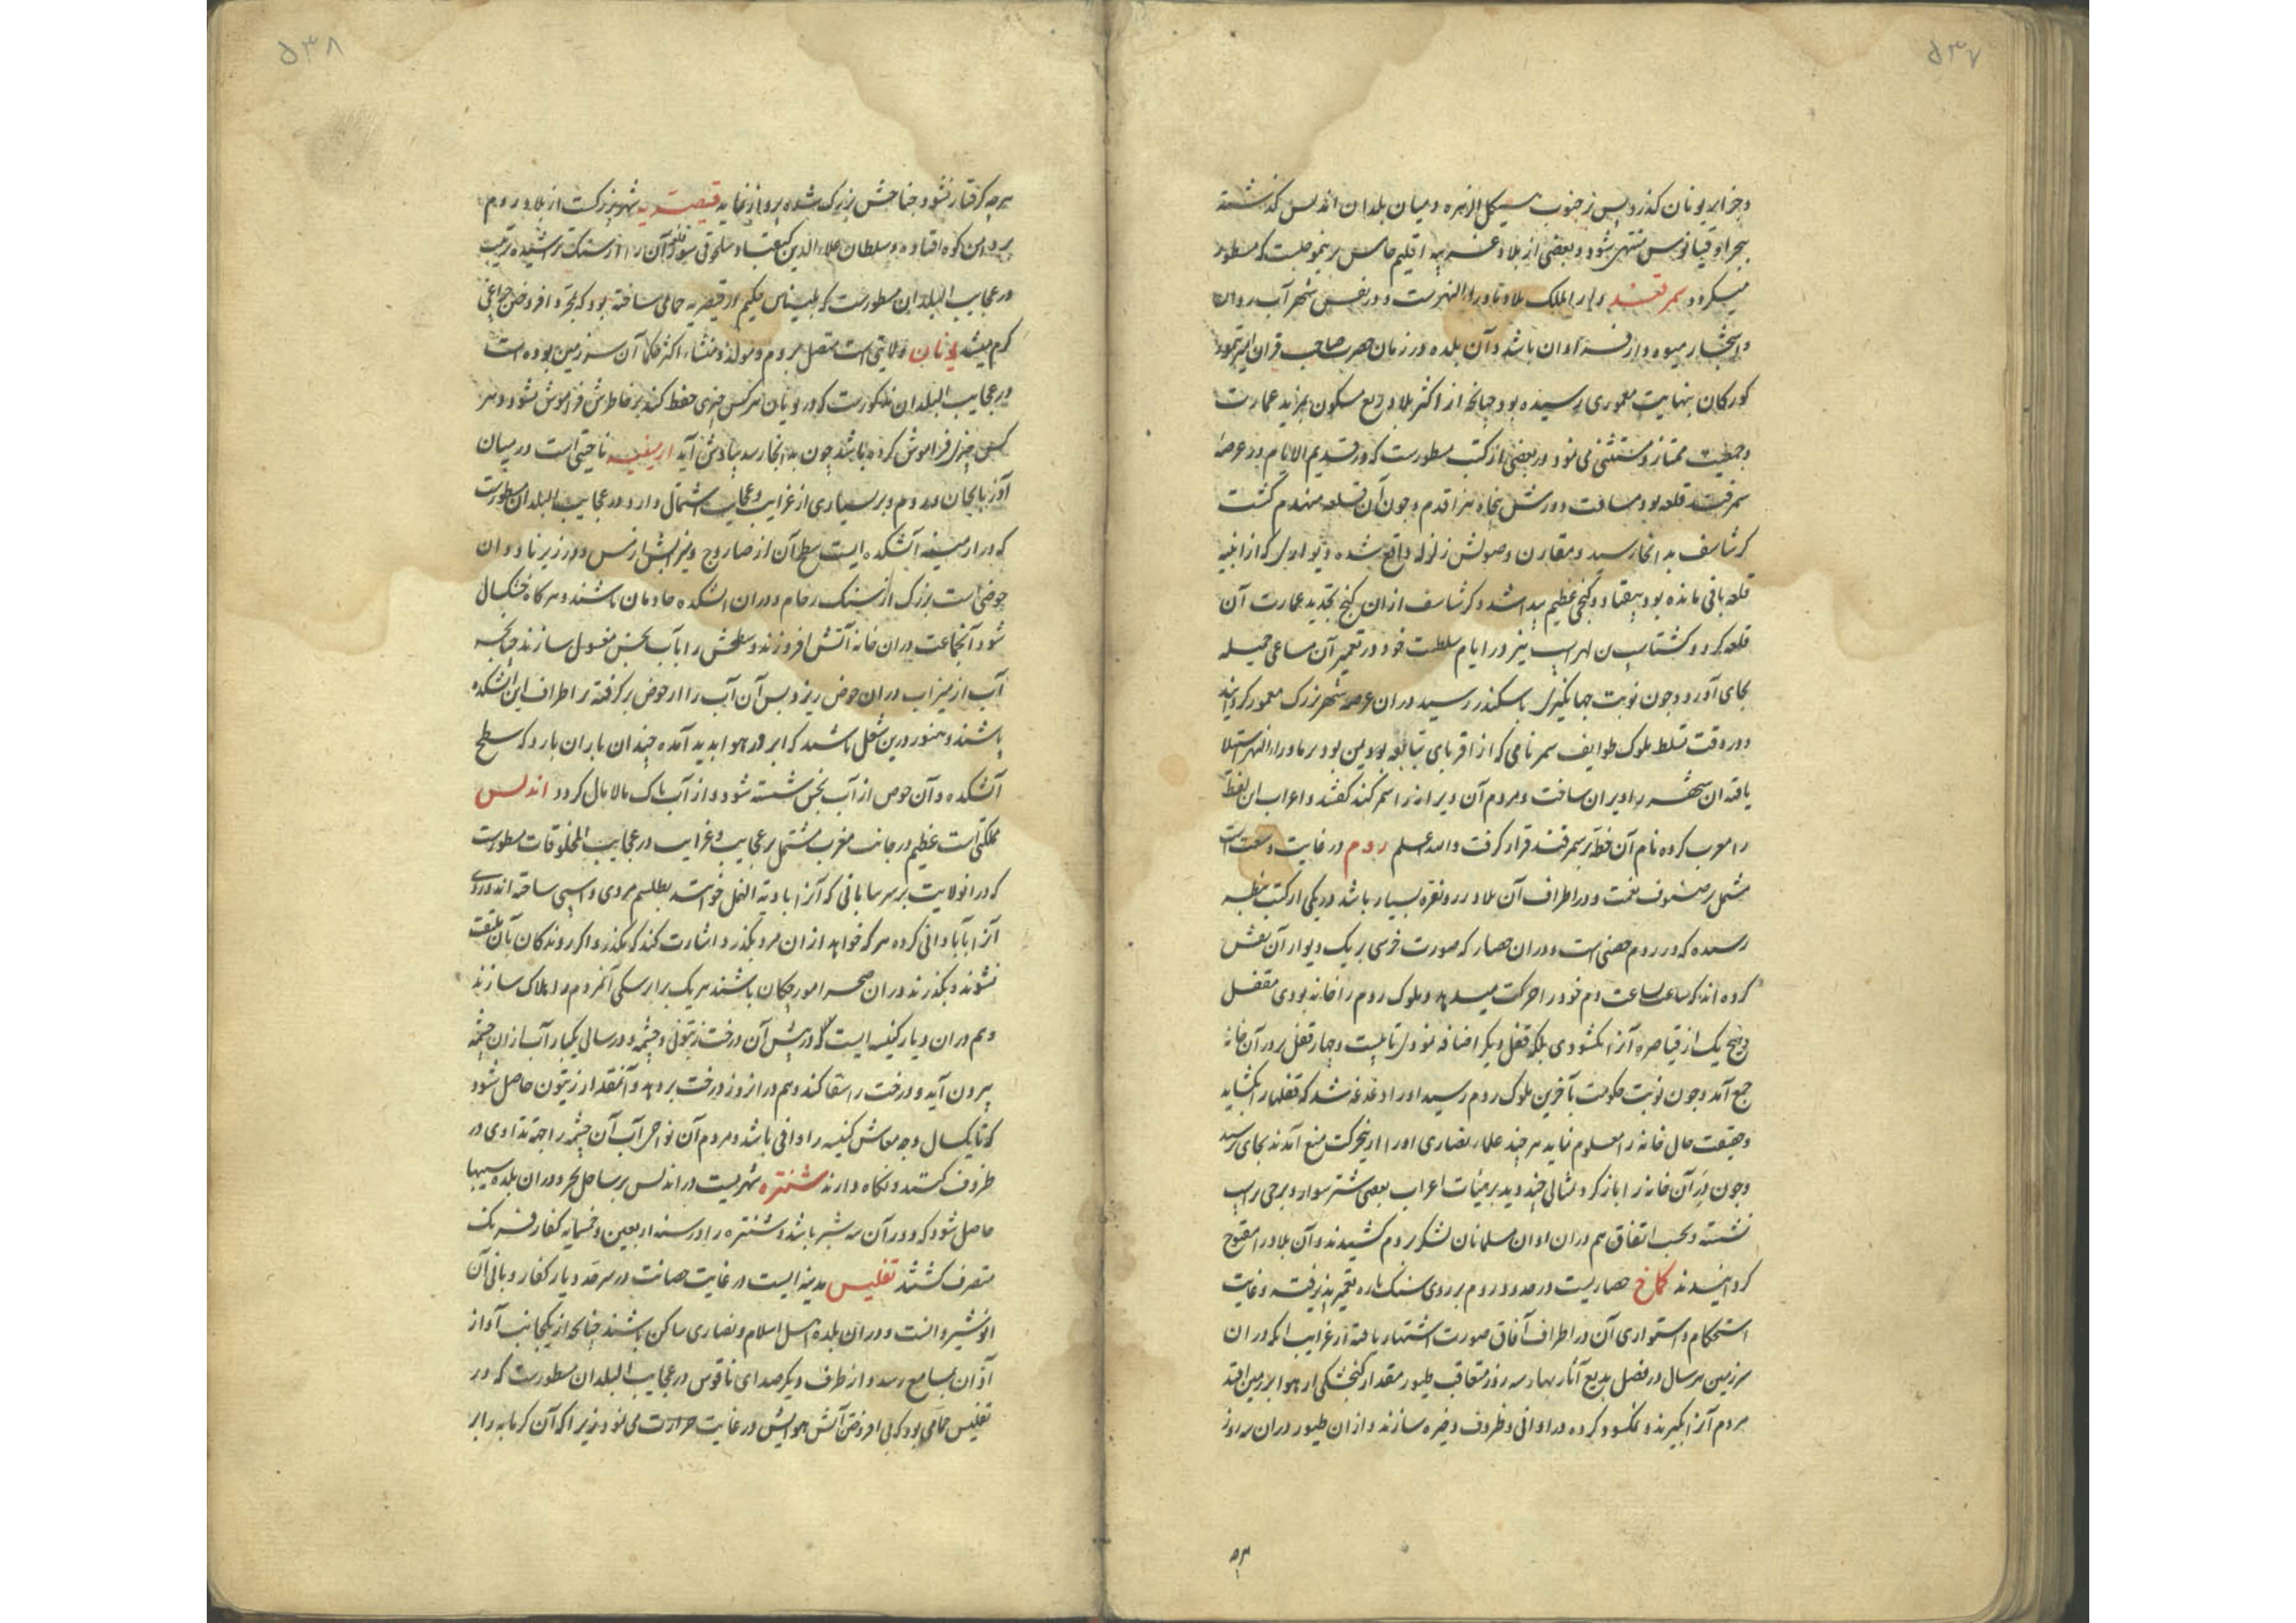 ۵۳۷
و جزایر یونان کذرد پس از جنوب هیکل الزهره و میان بلدان اندلس کذشته
ببحر اوقیانوس منتهی شود و بعضی از بلاد اقلیم خامس برینموجبست که مسطور
میکردد سمرقند دار الملک بلاد ماوراء النهرست و در نفس شهر آب روان
و اشجار میوه دار فراوان باشد و آن بلده در زمان حضرت صاحب قران امیر تیمور
کورکان بنهایت معموری رسیده بود چنانچه از اکثر بلاد ربع مسکون بمزید عمارت
و جمعیت ممتاز و مستثنی می نمود و در بعضی از کتب مسطورست که در قدیم الایام در عرصهٔ
سمرقند قلعه بود مسافت دورش پنجاه هزار قدم و چون آن قلعه منهدم کشت
کرشاسف بد انجا رسید و مقارن وصولش زلزله واقع شده دیواری که از ابنیه
قلعه باقی مانده بود بیفتاد و کنجی عظیم پیدا شد و کرشاسف از ان کنج تجدید عمارت آن
قلعه کرد و کشتاسب بن لهراسب نیز در ایام سلطنت خود در تعمیر آن مساعی جمیله
بجای آورد و چون نوبت جهانکیری باسکندر رسید در ان عرصه شهر بزرک معمور کردانید
و در وقت تسلط ملوک طوایف سمر نامی که از اقربای تبابعه یمن بود بر ماوراء النهر استیلا
یافته ان شهر را ویران ساخت و مردم آن ویرانه را سمرکند کفتند و اعراب این لفظ
را معرب کرده نام آن خطه بر سمرقند قرار کرفت والله اعلم روم در غایت وسعت است
مشتمل بر صنوف نعمت و در اطراف آن بلاد زر و نقره بسیار باشد در یکی از کتب بنظر
رسیده که در روم حصنی است و در ان حصار که صورت فرسی بر یک دیوار آن نقش
کرده اند که ساعت بساعت دم خود را حرکت میدهد و ملوک روم را خانه بودی مقفل
و هیچ یک از قیاصره آنرا نکشودی بلکه قفل دیکر اضافه نمودی تا بیست و چهار قفل بر در آن خانه
جمع آمد و چون نوبت حکومت بآخرین ملوک روم رسید او را دغدغه شد که قفلها را بکشاید
و حقیقت حال خانه را معلوم نماید هر چند علماء نصاری او را ازین حرکت منع آمدند بجای نرسید
و چون در آن خانه را باز کرد تمثالی چند دید بر هیئات اعراب بعضی شتر سوار و برخی بر اسب
نشسته و بحسب اتفاق هم دران اوان مسلمانان لشکر بروم کشیدند و آن بلاد را مفتوح
کردانیدند کماخ حصاریست در حدود روم بر روی سنک پاره تعمیر پذیرفته و غایت
استحکام و استواری آن در اطراف آفاق صورت اشتهار یافته از غرایب انکه در ان
سرزمین هر سال در فصل بدیع آثار بهار سه روز متعاقب طیور مقدار کنجشکی از هوا بر زمین افتد
مردم آنرا بکیرند و نمکسود کرده در اوانی و ظروف ذخیره سازند و از ان طیور در ان سه روز
۵۳۸
هر چه کرفتار نشود جناحش بزرک شده پرواز نماید قیصریه شهری بزرکست از بلاد روم
بر دامن کوه افتاده و سلطان علاء الدین کیقباد سلجوقی سور آن را از سنک تراشیده ترتیب
در عجایب البلدان مسطورست که بلیناس حکیم در قیصریه حمامی ساخته بود که بمجرد افروختن چراغی
کرم میشد یونان ولایتی است متصل بروم و مولد و منشاء اکثر حکما آن سرزمین بوده است
در عجایب البلدان مذکورست که در یونان هر کس چیزی حفظ کند بر خاطرش فراموش نشود و هر
کس چیزی فراموش کرده باشد چون بد انجا رسد بیادش آید ارمنیه ناحیتی است در میان
آذربایجان و روم و بر بسیاری از غرایب و عجایب اشتمال دارد و در عجایب البلدان مسطورست
که در ارمنیه آتشکده ایست سطح آن از صاروج و میزابش از مس و در زیر ناودان
حوضی است بزرک از سنک رخام و دران اتشکده خادمان باشند و هر کاه خشکسال
شود آنجماعت دران خانه آتش افروزند و سطحش را بآب نجس مغسول سازند چنانچه
آب از میزاب دران حوض ریزد پس آن آب را از حوض برکرفته بر اطراف این آتشکده
پاشند و هنوز درین شغل باشند که ابر در هوا پدید آمده چندان باران بارد که سطح
آتشکده و آن حوض از آب نجس شسته شود و از آب پاک مالامال کردد اندلس
مملکتی است عظیم در جانب مغرب مشتمل بر عجایب و غرایب در عجایب المخلوقات مسطورست
که در انولایت بر سر بیابانی که آنرا بادیة النمل خوانند بطلسم مردی و اسبی ساخته اند و روی
آنرا بآبادانی کرده هر که خواهد از ان مرد بکذرد اشارت کند که مکذر و اکر روندکان بآن ملتفت
نشوند و بکذرند دران صحرا مورچکان باشند هر یک برابر سکی آنمردم را هلاک سازند
و هم دران دیار کنیسه ایست که در پیش آن درخت زیتونی و چشمه و در سالی یکبار آب از ان چشمه
بیرون آید و درخت را سقا کند و هم در انروز درخت بر دهد و آنمقدار زیتون حاصل شود
که تا یکسال وجه معاش کنیسه را وافی باشد و مردم آن نواحی آب آن چشمه را جهة تداوی در
ظروف کنند و نکاه دارند شنتره شهریست در اندلس بر ساحل بحر و دران بلده سیبها
حاصل شود که دور آن سه شبر باشد و شنتره را در سنه اربعین و خمسمایه کفار فرنک
متصرف کشتند تفلیس مدینه ایست در غایت حصانت در سرحد دیار کفار و بانی آن
انوشیروانست و در ان بلده اهل اسلام و نصاری ساکن باشند چنانچه از یکجانب آواز
آذان بمسامع رسد و از طرف دیکر صدای ناقوس در عجایب البلدان مسطورست که در
تفلیس حمامی بود که بی افروختن آتش هوایش در غایت حرارت می نمود زیرا که آن کرمابه را بر